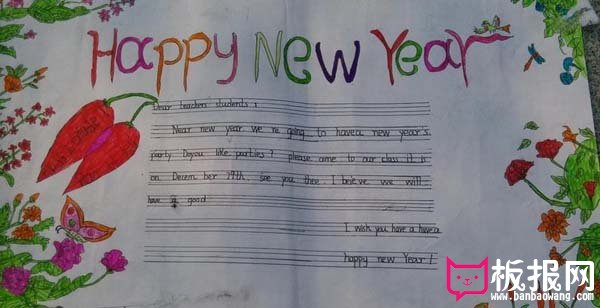 Happy New Year
Dear teachers students :
Near new year we're going to havea new year's
party. Doyou like parties ? please come to our class it is
on Decem ber 29th. see you thee I beieve we will
have a good
I wish you have a havea
happy new Year !
板报网
www.banbaowang.com